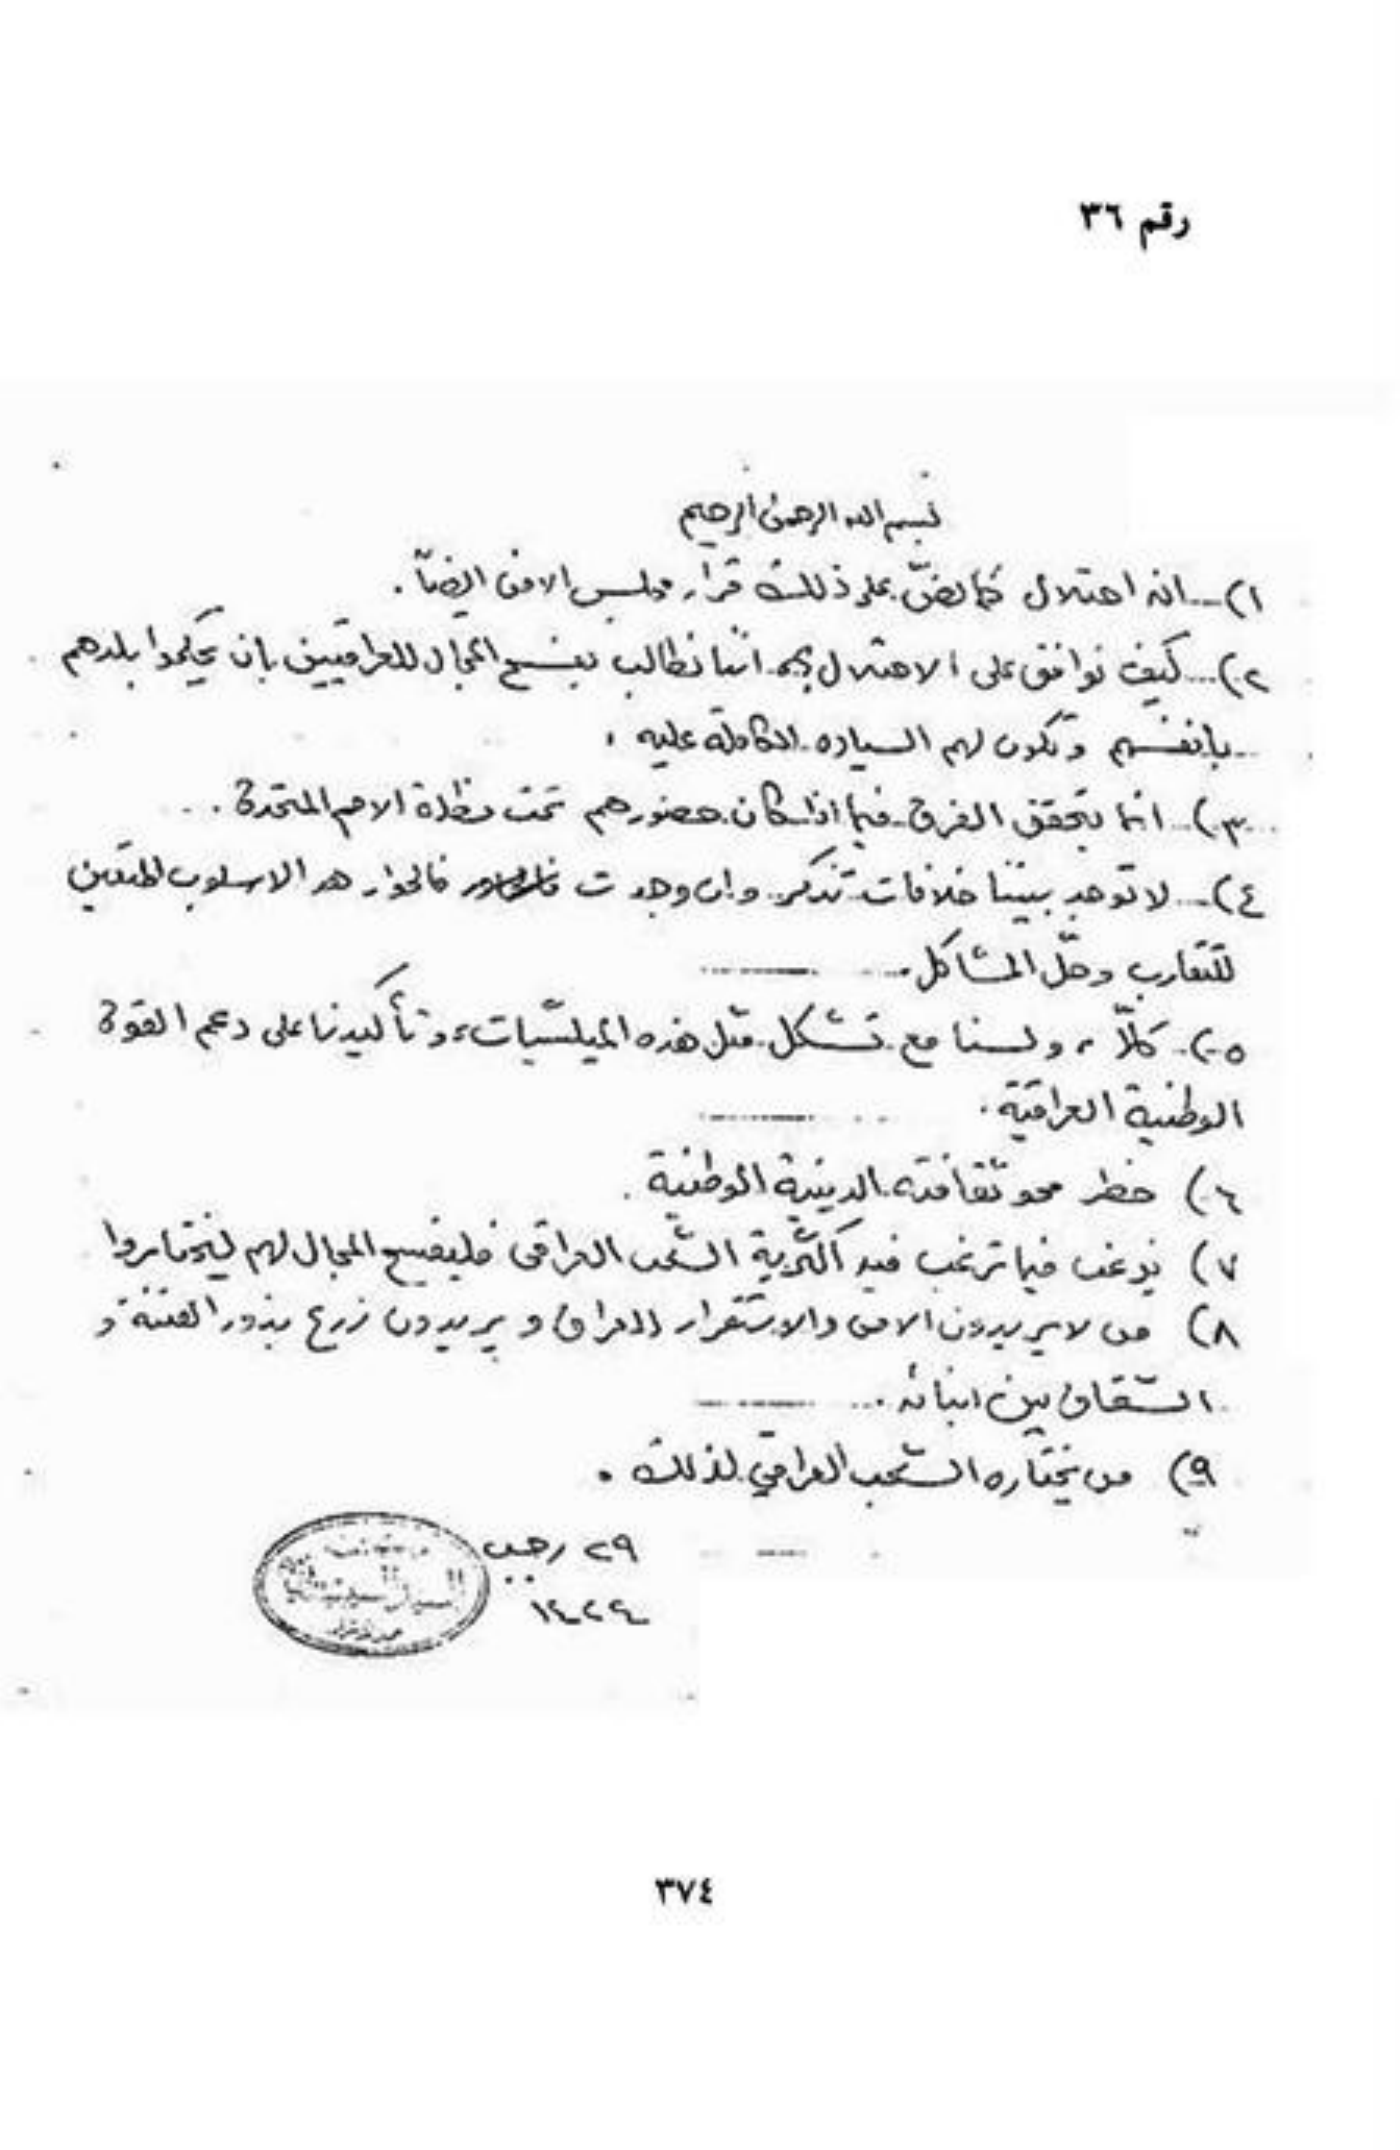 رقم ٣٦
بسم الله الرحمن الرحيم
١) انه احتلال كما نصّ على ذلك قرار مجلس الامن ايضاً .
٢) كيف نوافق على الاحتلال ؟ اننا نطالب بفسح المجال للعراقيين بان يحكموا بلدهم
بانفسهم وتكون لهم السياده الكاملة عليه .
٣) انما يتحقق الفرق فيما اذا كان حضورهم تحت مظلة الامم المتحدة .
٤) لا توجد بيننا خلافات تذكر وان وجدت فالحوار هو الاسلوب المتعين
للتقارب وحلّ المشاكل .
٥) كلّا ، ولسنا مع تشكل مثل هذه الميلشيات ، وتأكيدنا على دعم القوة
الوطنية العراقية .
٦) خطر محو ثقافته الدينية الوطنية .
٧) نرغب فيما ترغب فيه اكثرية الشعب العراقي فليفسح المجال لهم ليختاروا
٨) من لا يريدون الامن والاستقرار للعراق ويريدون زرع بذور الفتنة و
الشقاق بين ابنائه .
٩) من يختاره الشعب العراقي لذلك .
٢٩ رجب
١٤٢٤
٣٧٤